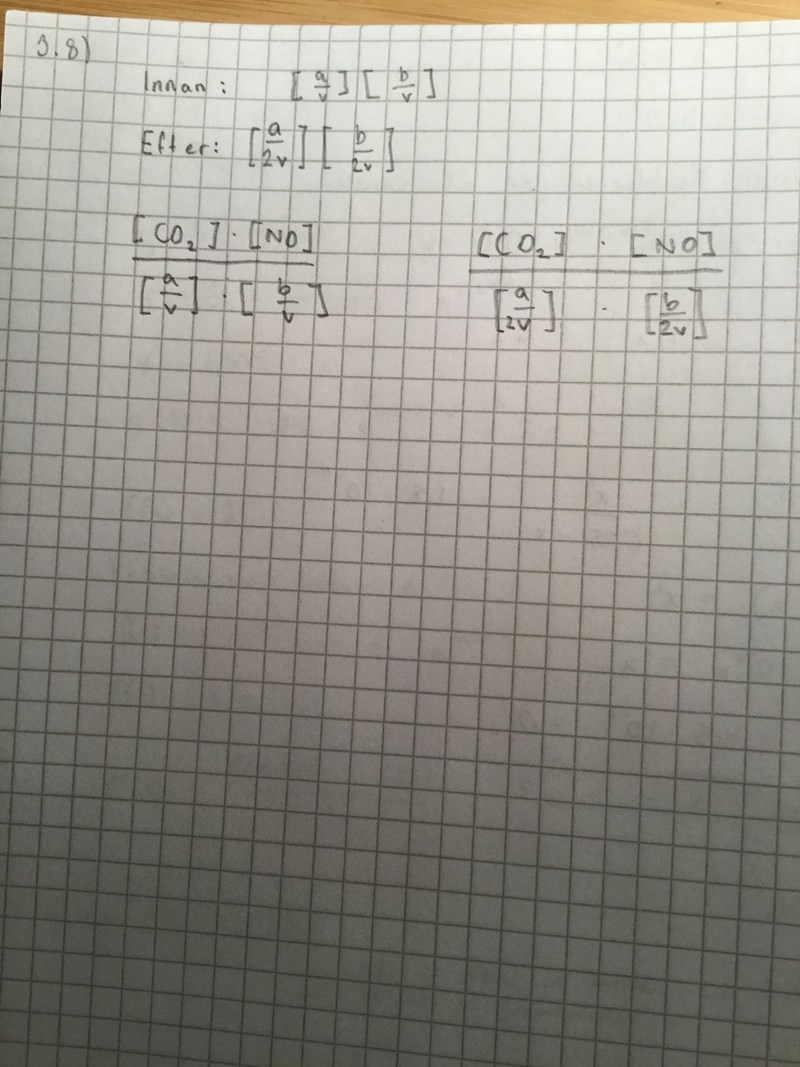 3.8)
Innan: [a/v] [b/v]
Efter: [a/2v] [b/2v]
[CO₂] · [NO] / [a/v] · [b/v]
[CO₂] · [NO] / [a/2v] · [b/2v]